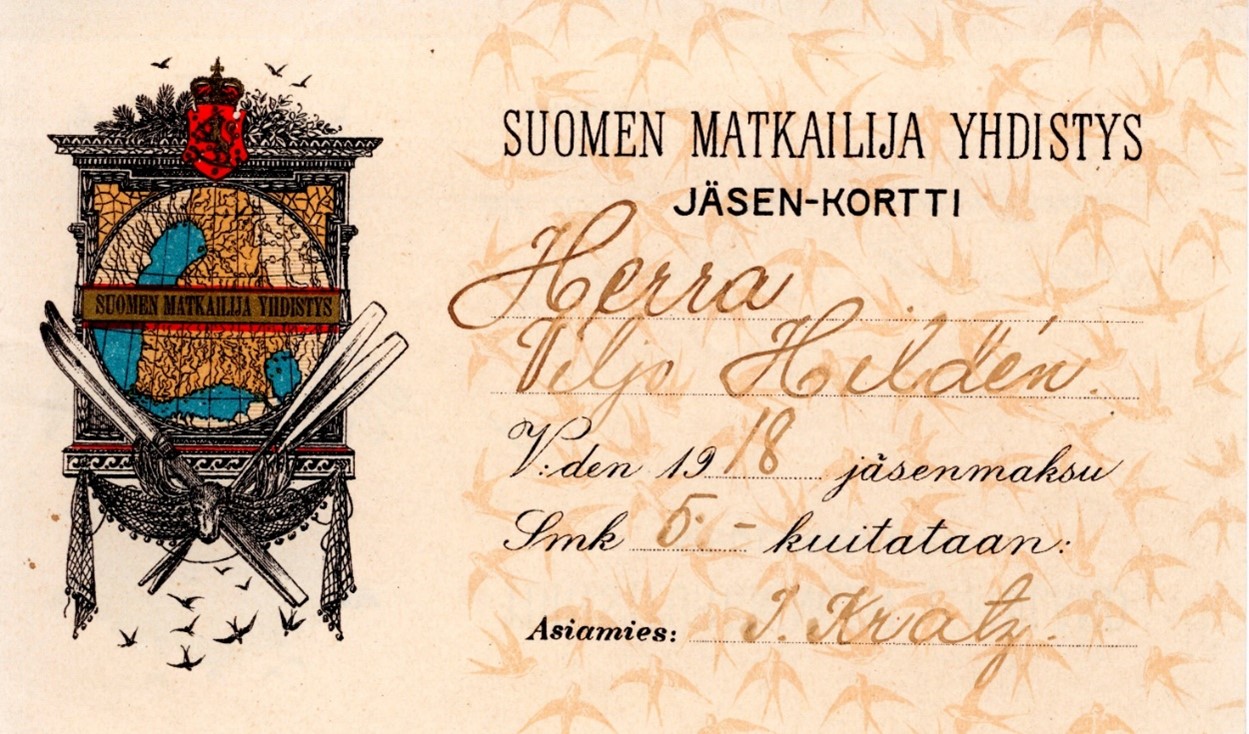 SUOMEN MATKAILIJA YHDISTYS
JÄSEN-KORTTI
Herra
Viljo Hildén.
V:den 1918 jäsenmaksu
Smk 5.- kuitataan:
Asiamies: J. Kratz.
SUOMEN MATKAILIJA YHDISTYS